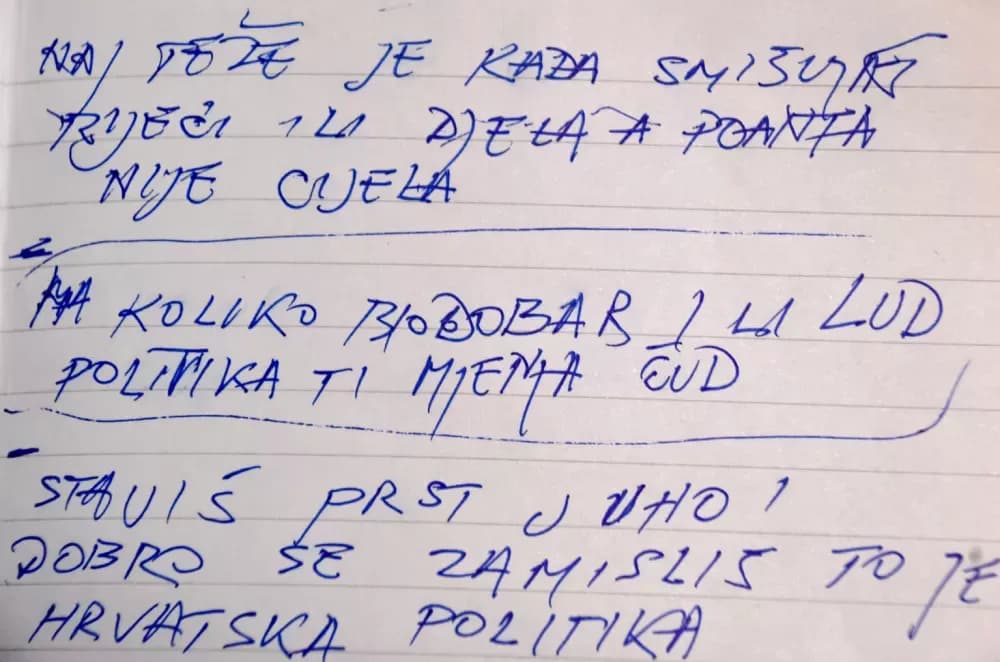 NAJ TEŽE JE KADA SMIŠLJAŠ
RIJEČI ILI DJELA A POANTA
NIJE CIJELA
MA KOLIKO BIO DOBAR ILI LUD
POLITIKA TI MJENJA ĆUD
STAVIŠ PRST U UHO I
DOBRO SE ZAMISLIŠ TO JE
HRVATSKA POLITIKA